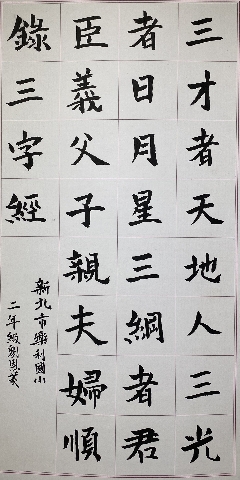 三才者天地人三光
者日月星三綱者君
臣義父子親夫婦順
錄三字經
新北市樂利國小
二年級劉恩羲